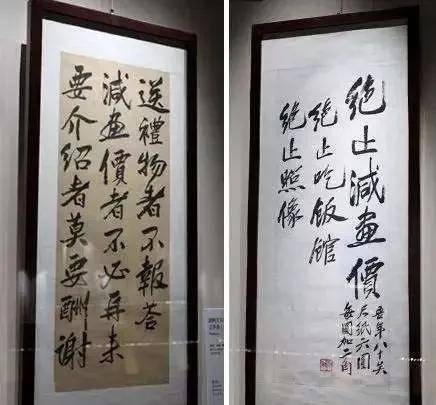 送禮物者不報答
減畫價者不必再来
要介紹者莫要酬謝
絕止減畫價
絕止吃饭館
絕止照像
吾年八十矣
尺紙六圓
每圓加二角